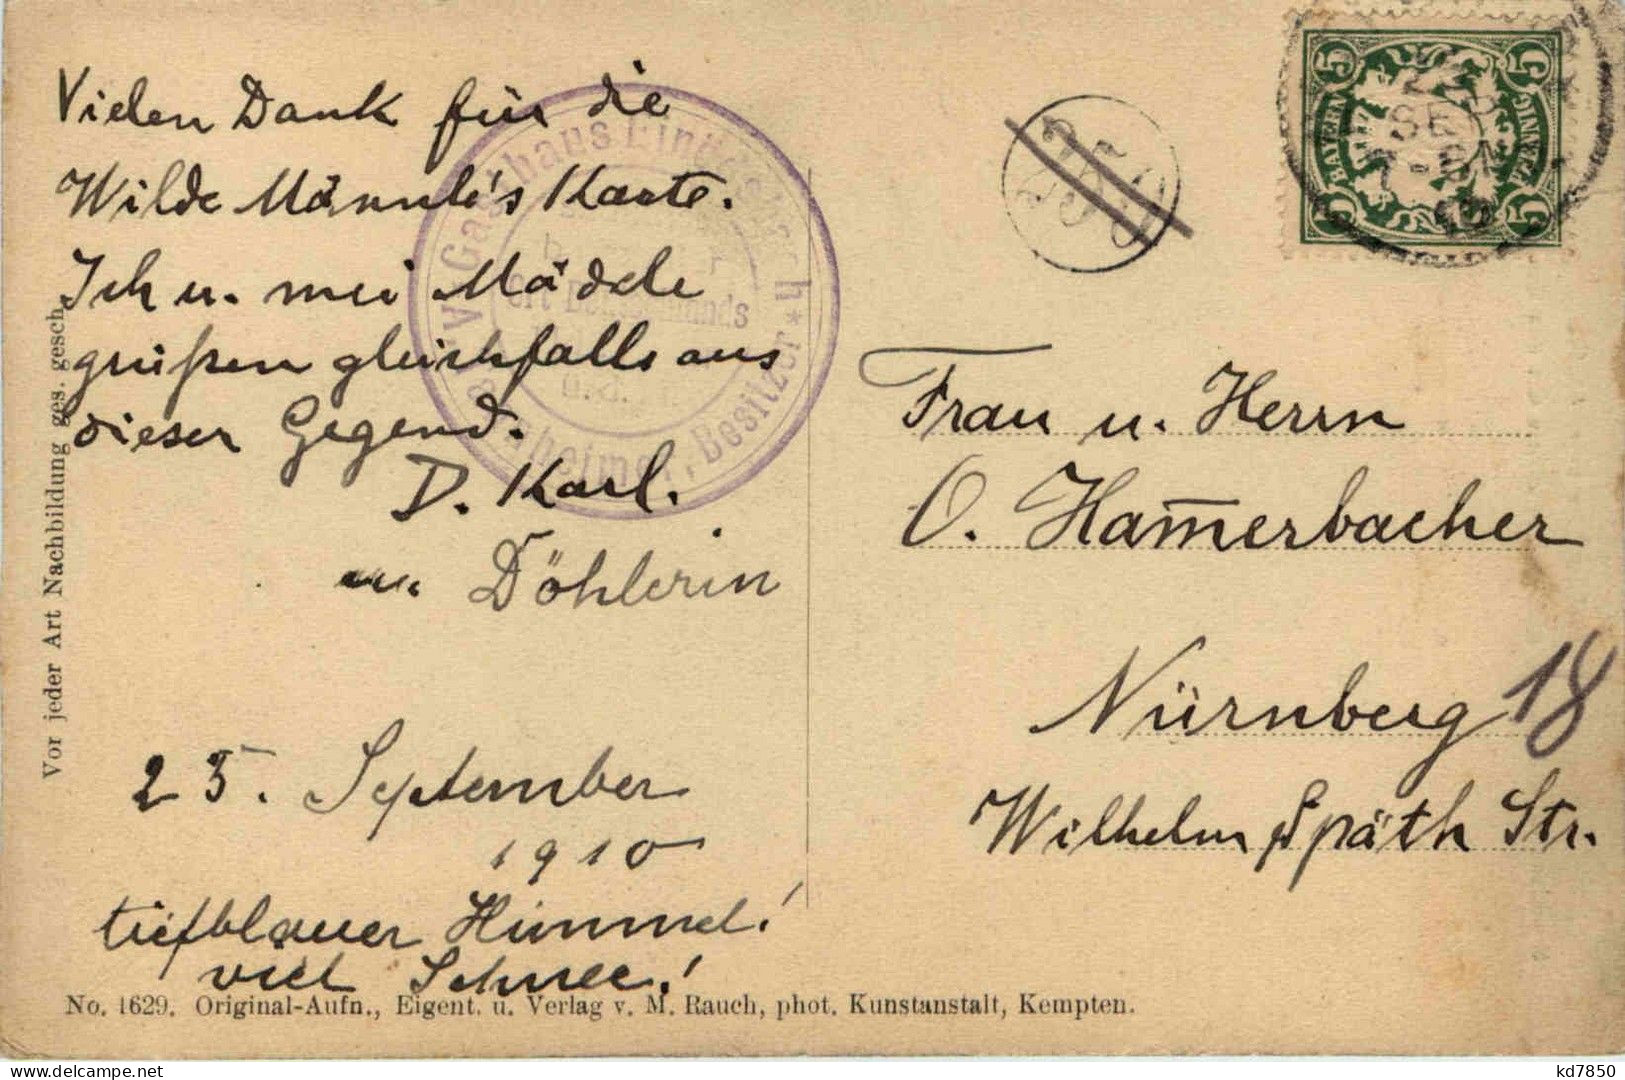 Vielen Dank für die
Wilde Männle's Karte.
Ich u. mei Mädele
grüßen gleichfalls aus
dieser Gegend.
D. Karl.
u. Döhlerin
25. September
1910
tiefblauer Himmel!
viel Schnee!
Gasthaus Einödsbach
Besitzer
Frau u. Herrn
O. Ham̅erbacher
Nürnberg 18
Wilhelm Späth Str.
350
5 5
BAYERN
PFENNIG
5 5
Vor jeder Art Nachbildung ges. gesch.
No. 1629. Original-Aufn., Eigent. u. Verlag v. M. Rauch, phot. Kunstanstalt, Kempten.
kd7850